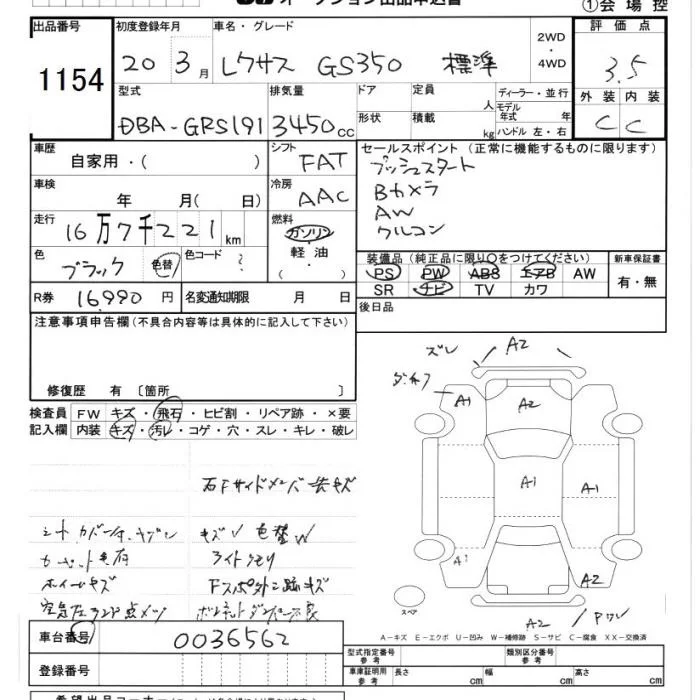 オークション出品申込書
①会場控
出品番号 初度登録年月 車名・グレード 2WD・4WD 評価点
1154 20 3月 レクサス GS350 標準 3.5
型式 排気量 ドア 定員 人 ディーラー・並行 外装 内装
DBA-GRS191 3450cc 形状 積載 kg モデル年式 年 ハンドル 左・右 C C
車歴 シフト セールスポイント(正常に機能するものに限ります)
自家用・( ) FAT プッシュスタート
車検 冷房 Bカメラ
年 月( 日) AAC AW
走行 燃料 クルコン
16万7千221km ガソリン・軽油・( )
色 色コード 装備品(純正品に限り○をつけてください) 新車保証書
ブラック 色替 ? PS PW ABS エアB AW 有・無
R券 16,990円 名変通知期限 月 日 SR ナビ TV カワ
後日品
注意事項申告欄(不具合内容等は具体的に記入して下さい)
修復歴 有〔箇所 〕
検査員 FW キズ・飛石・ヒビ割・リペア跡・×要
記入欄 内装 キズ・汚レ・コゲ・穴・スレ・キレ・破レ
ズレ A2
A1 A2
A1 A1
A1 A2
A2
スペア
右Fサイドメンバー
シートカバー付
キズ 色替W
ライトクモリ
ホイールキズ
空気圧ランプ点
A-キズ E-エクボ U-凹み W-補修跡 S-サビ C-腐食 XX-交換済
車台番号 0036562
登録番号
型式指定番号 参考 類別区分番号 参考
車庫証明用 参考 長さ cm 幅 cm 高さ cm